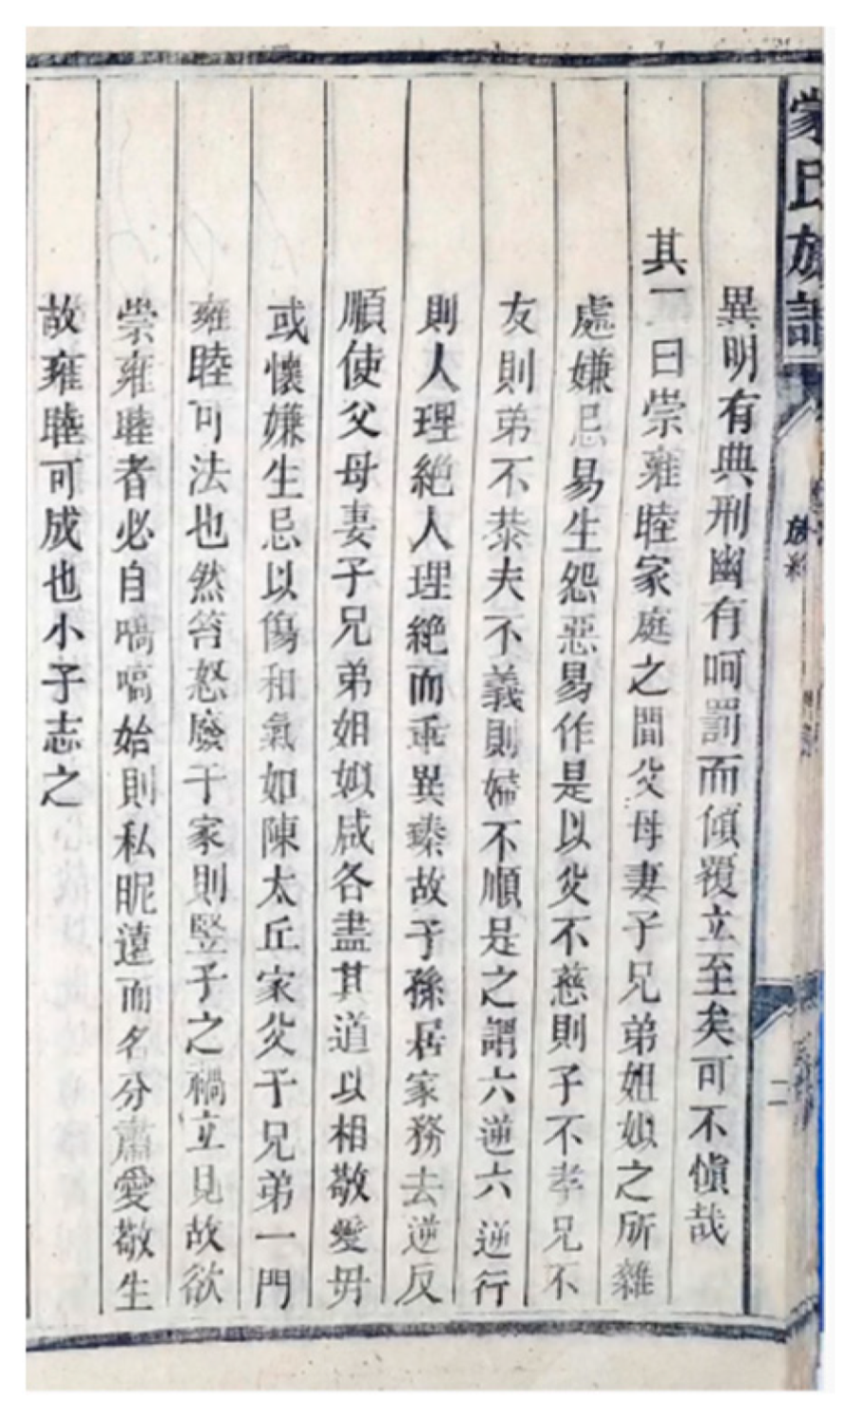 蒙氏族譜
異明有典刑幽有呵罰而傾覆立至矣可不慎哉
其一曰崇雍睦家庭之間父母妻子兄弟妯娌之所雜
處嫌忌易生怨惡易作是以父不慈則子不孝兄不
友則弟不恭夫不義則婦不順是之謂六逆六逆行
則人理絕人理絕而乖異臻故子孫居家務去逆反
順使父母妻子兄弟妯娌咸各盡其道以相敬愛毋
或懷嫌生忌以傷和氣如陳太丘家父子兄弟一門
雍睦可法也然笞怒廢于家則豎子之禍立見故欲
崇雍睦者必自嗃嗃始則私昵遠而名分肅愛敬生
故雍睦可成也小子志之
二